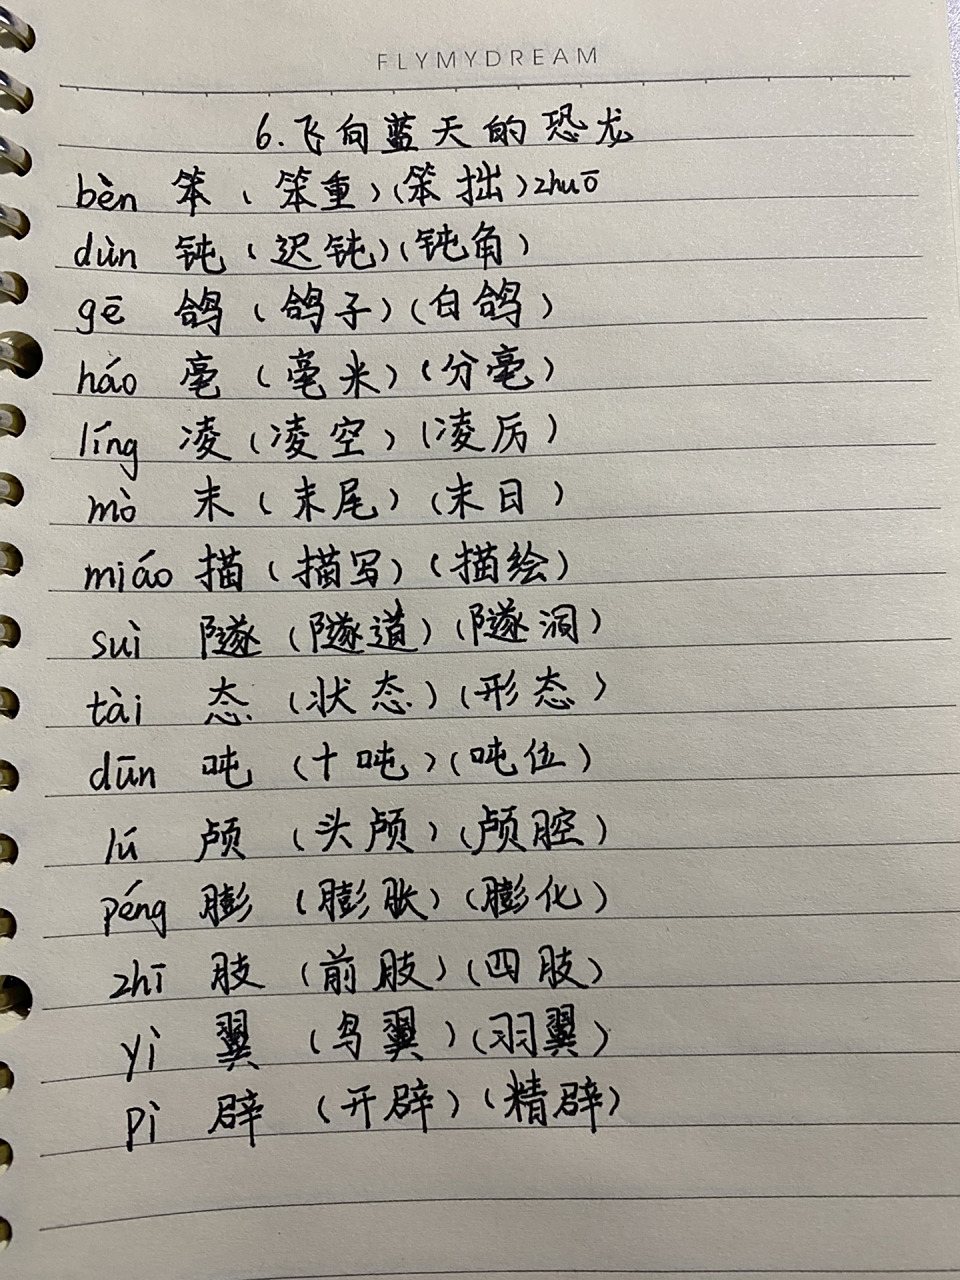 FLYMYDREAM
6.飞向蓝天的恐龙
bèn 笨(笨重)(笨拙)zhuō
dùn 钝(迟钝)(钝角)
gē 鸽(鸽子)(白鸽)
háo 毫(毫米)(分毫)
líng 凌(凌空)(凌厉)
mò 末(末尾)(末日)
miáo 描(描写)(描绘)
suì 隧(隧道)(隧洞)
tài 态(状态)(形态)
dūn 吨(十吨)(吨位)
lú 颅(头颅)(颅腔)
péng 膨(膨胀)(膨化)
zhī 肢(前肢)(四肢)
yì 翼(鸟翼)(羽翼)
pì 辟(开辟)(精辟)